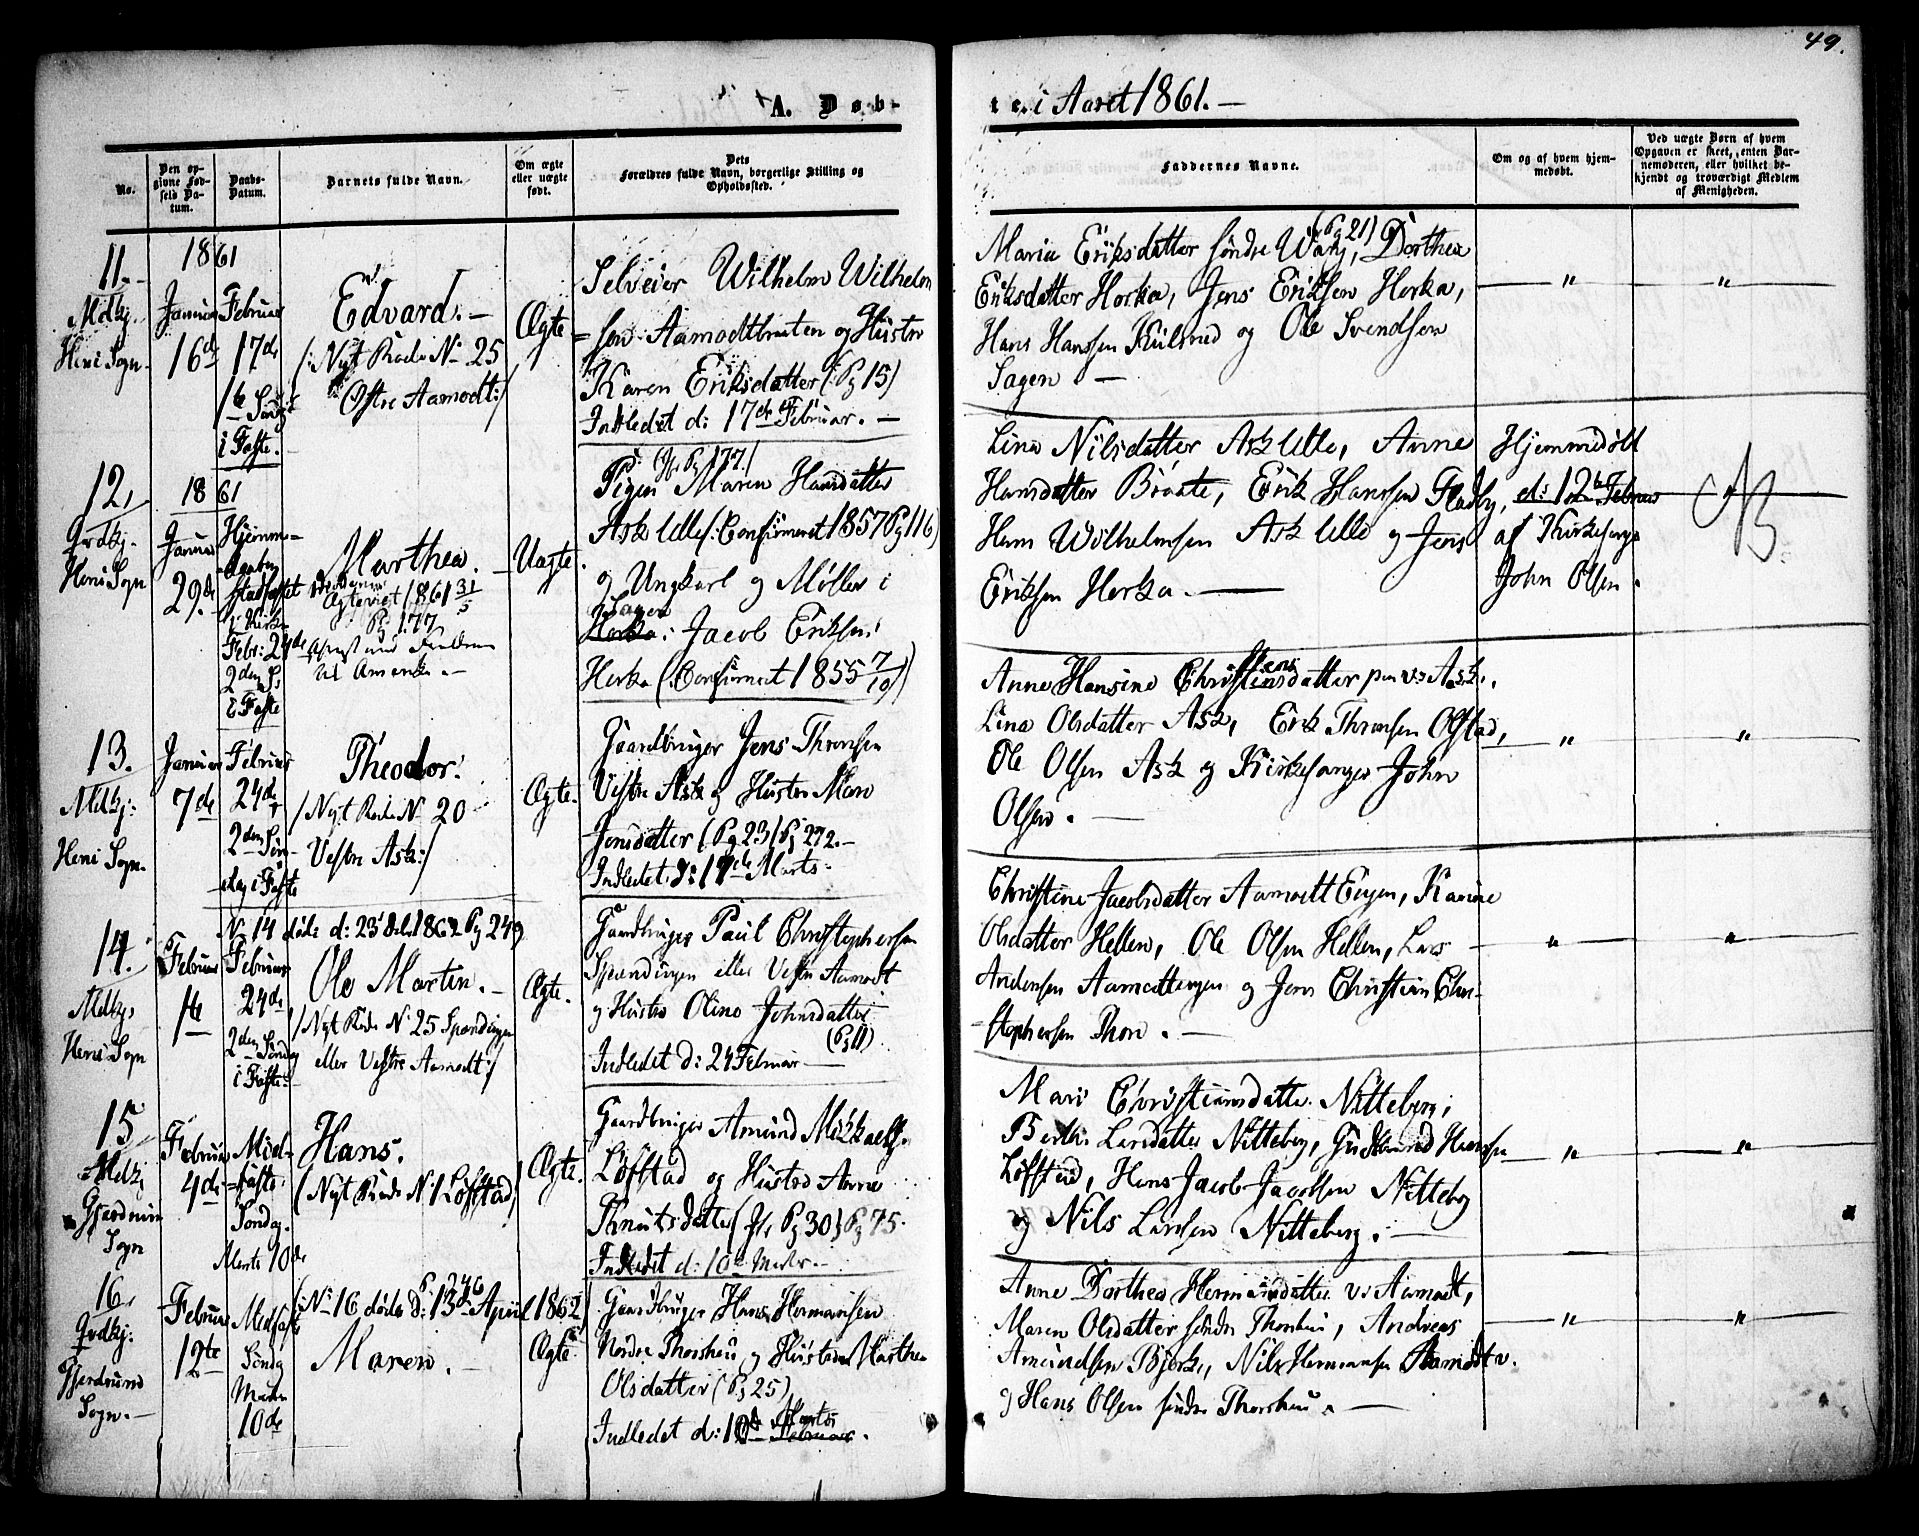 49.
A. Døb-
te i Aaret 1861. —
No.
Den opgivne Fødsels Datum.
Daabs-Datum.
Barnets fulde Navn.
Om ægte eller uægte født.
Dets Forældres fulde Navn, borgerlige Stilling og Opholdssted.
Faddernes Navne.
Om og af hvem hjemmedøbt.
Ved uægte Børn af hvem Opgaven er skeet, enten Barnemoderen, eller hvilket bekjendt og troværdigt Medlem af Menigheden.
11.
Mdkj.
Heni Sogn.
1861
Januar
16de
Februar
17de
1te Søndg
i Faste.
Edvard. —
/: Nyt Rode No 25
Østre Aamodt :/
Ægte
Selveier Wilhelm Wilhelm
= sen Aamodtbraten og Hustr
Karen Eriksdatter (Pg 15)
Indledet d: 17de Februar. —
Maria Eriksdatter søndre Wang, (Pg 21) Dorthea
Eriksdatter Horka, Jens Eriksen Horka,
Hans Hanssen Kulsrud og Ole Svendsen
Sagen —
"
"
12,
Qvdkj.
Heni Sogn
1861
Januar
29de
Hjemme-
daaben
stadfæstet
i Kirk
Febr: 24de
2den S
i Faste
Marthea. —
Ægteviet 1861 31/5
Pg 177
til Amerika. —
Uægte
Pigen (Jfr Pg 177) Maren Hansdatter
Ask Ulle (: Confirmeret 1857 Pg 116)
og Ungkarl og Møller i
Sagen
Horka: Jacob Eriksen
Horka (: Confirmeret 1855 7/10)
Lina Nilsdatter Ask Ulle, Anne
Hansdatter Braate, Erik Hanssen Fladby,
Hans Wilhelmsen Ask Ulle og Jens
Eriksen Horka. —
Hjemmedøbt
d: 12te Februar
af Kirkesanger
John Olsen.
13.
Mdkj:
Heni Sogn.
Januar
7de
Februar
24de
2den Søn-
dag i Faste
Theodor.
/ Nyt Rode No 20
Vestre Ask :/
Ægte.
Gaardbruger Jens Thronsen
Vestre Ask og Hustr Mari
Jensdatter (Pg 23) Pg 272. —
Indledet d: 17de Marts.
Anne Hansine Christensdatter Ask.
Lina Olsdatter Ask, Erik Thronsen Olstad,
Ole Olsen Ask og Kirkesanger John
Olsen. —
"
"
14.
Mdkj.
Heni Sogn
Februar
1te
No 14 døde d: 23 1862 Pg 249
Februar
24de
2den Søndag
i Faste.
Ole Martin. —
/ Nyt Rode No 25 Spændingen
eller Vestre Aamodt :/
Ægte.
Gaardbruger Paul Christophersen
Spændingen eller Vestre Aamodt
og Hustro Oline Johnsdatter
(Pg 11)
Indledet d: 24 Februar —
Christine Jacobsdatter Aamodt Eugen, Karine
Olsdatter Hellen, Ole Olsen Hellen, Lars
Andersen Aamodteugen og Jens Christian Chri-
stophersen Thon. —
"
"
15
Mdkj
Gjerdrum
Sogn
Februar
4de
Mid-
faste
Søndag.
Marts 10de
Hans.
(Nyt Rode No 1 Løfstad)
Ægte.
Gaardbruger Amund Mikkaels.
Løfstad og Hustro Anne
Knutsdatter (Jfr Pg 30) Pg 75.
Indledet d: 10de Marts. —
Mari Christiansdatter Nitteberg,
Berthe Larsdatter Nitteberg, Gudbrand Hansen
Løfstad, Hans Jacob Jacobsen Nitteberg
og Nils Larsen Nitteberg. —
"
"
16,
Qvdkj:
Gjerdrum
Sogn. —
Februar
12te
Midfaste
Søndg
Marts
10de
(No 16 døde d: 13de April 1862) Pg 246
Maren. —
Ægte
Gaardbruger Hans Hermansen
Nordre Thorshau og Hustru Marthea
Olsdatter (Pg 25)
Indledet d: 10de Marts Februar.
Anne Dorthea Hermansdatter v. Aamodt,
Maren Olsdatter søndre Thorshau, Andreas
Amundsen Bjerke, Nils Hermansen Aamodt v.
og Hans Olsen søndre Thorshau. —
"
"